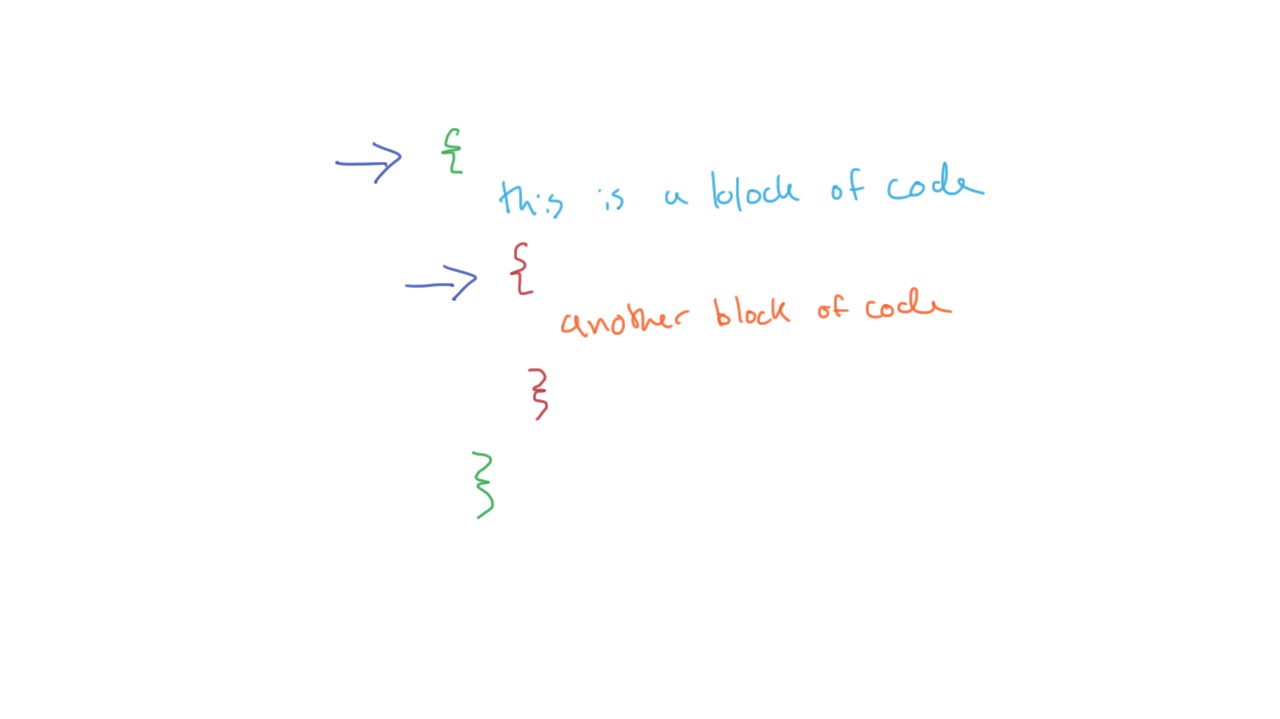 {
this is a block of code
{
another block of code
}
}